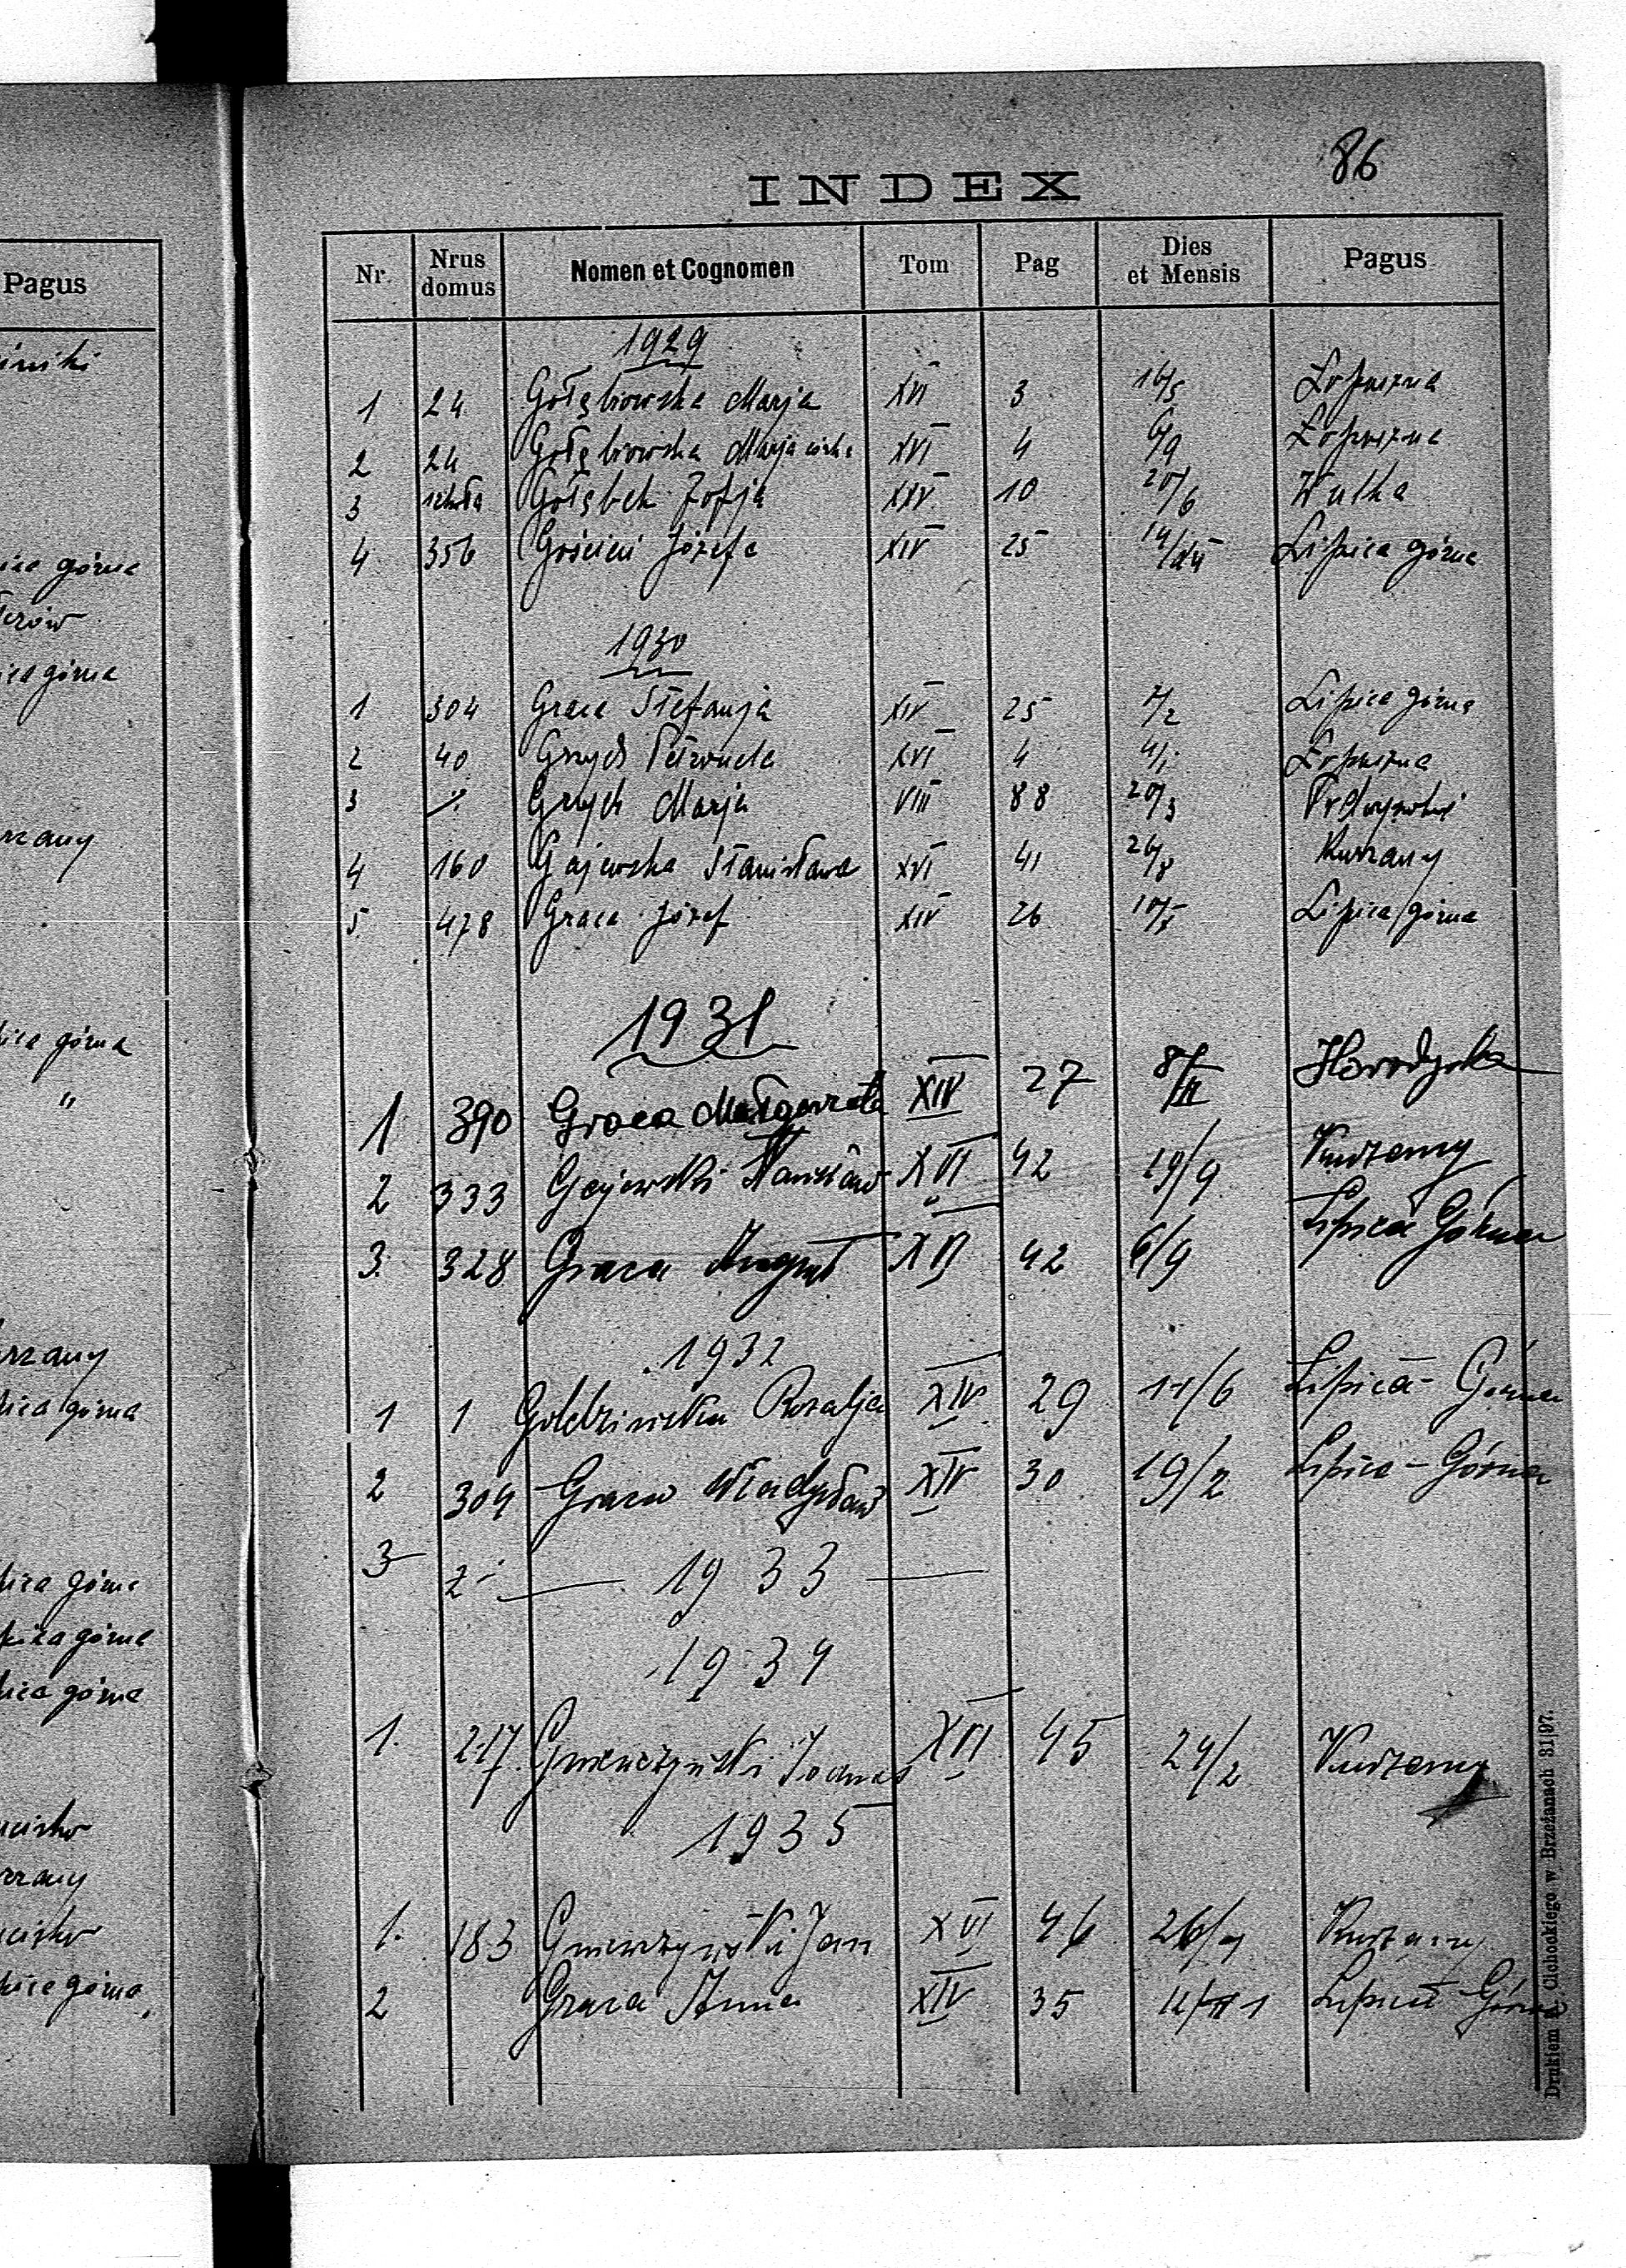 86
INDEX
Pagus
Nr. Nrus domus Nomen et Cognomen Tom Pag Dies et Mensis Pagus
1929
1 24 Gołębiowska Marja XVI 3 16/5 Łopuszna
2 24 Gołębiowska Marja córka XVI 4 6/9 Łopuszna
3 Gołąbek Zofja XXV 10 20/6 Wulka
4 356 Gościcki Józefa XIV 25 14/ Lipica górna
1930
1 304 Graca Stefanja XIV 25 7/2 Lipica górna
2 40 Grzych Petronela XVI 4 4/1 Łopuszna
3 Grzych Marja VIII 88 20/3
4 160 Gajewska Stanisława XVI 41 26/8 Kurzany
5 478 Graca Józef XIV 26 Lipica górna
1931
1 390 Graca Małgorzata XIV 27 8/II
2 333 Gajewski Stanisław XVI 42 19/9 Kurzany
3. 328 Graca August XVI 42 6/9 Lipica Górna
1932
1 1 Rozalja XIV 29 11/6 Lipica - Górna
2 304 Graca Władysław XIV 30 19/2 Lipica - Górna
3 2 — 1933 —
1934
1. 217. XVI 45 24/2 Kurzany
1935
1. 183 Jan XVI 46 Kurzany
2 Graca Anna XIV 35 Lipica Górna
ica górna
ica górna
rzany
ica górna
"
rzany
ica górna
ica górna
ica górna
ica górna
rzany
ica górna
Drukiem Cichockiego w Brzeżanach 31|97.